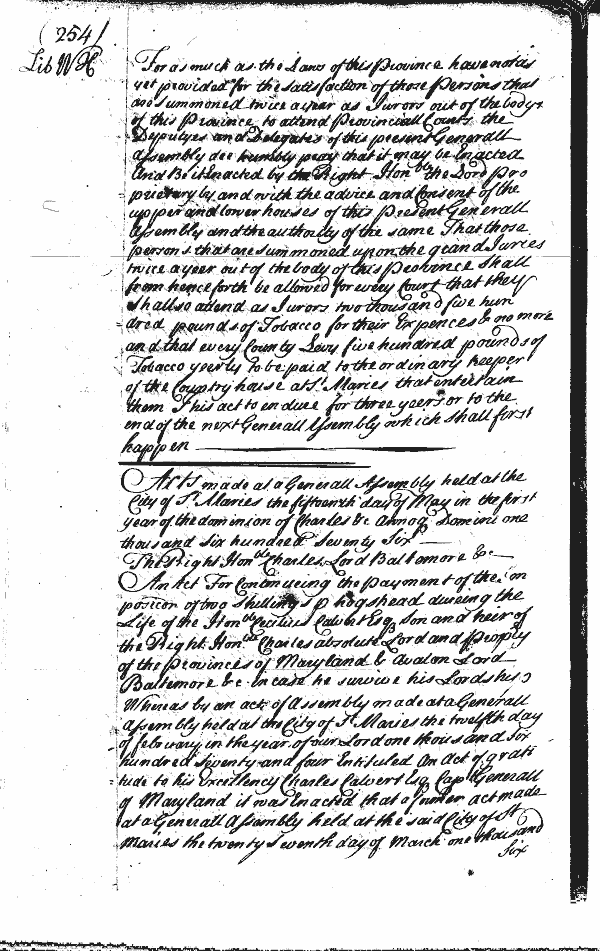 (254)
Lib WH
For as much as the Laws of this Province have not as
yet provided for the satisfaction of those Persons that
are summoned twice a year as Jurors out of the body
of this Province to attend Provinciall Courts the
Deputyes and Delegates of this present Generall
Assembly doe humbly pray that it may be Enacted
And Be it Enacted by the Right Honble the Lord Pro
prietary by and with the advice and Consent of the
upper and lower houses of this Present Generall
Assembly and the authority of the same That those
persons that are summoned upon the grand Juries
twice a yeer out of the body of this Province shall
from henceforth be allowed for every Court that they
shall so attend as Jurors two thousand five hun
dred pounds of Tobacco for their Expences & no more
and that every County Levy five hundred pounds of
Tobacco yeerly to be paid to the ordinary keeper
of the Country house at St Maries that entertain
them This act to endure for three yeers or to the
end of the next Generall Assembly which shall first
happen
Acts made at a Generall Assembly held at the
City of St Maries the fifteenth day of May in the first
year of the dominion of Charles &c Annoq Domini one
thousand six hundred Seventy Six
The Right Honble Charles Lord Baltemore &c
An Act For Continueing the payment of the im
posicon of two shillings p hogshead dureing the
Life of the Honble Cecilius Calvert Esq Son and heir of
the Right Honble Charles absolute Lord and Propry
of the Provinces of Maryland & Avalon Lord
Baltemore &c in case he survive his Lordship
Whereas by an act of Assembly made at a Generall
Assembly held at the City of St Maries the twelfth day
of february in the year of our Lord one thousand six
hundred seventy and four Entituled An Act of grati
tude to his Excellency Charles Calvert Esq Capt Generall
of Maryland it was Enacted that a former act made
at a Generall Assembly held at the said City of St
Maries the twenty Seventh day of March one thousand
Six